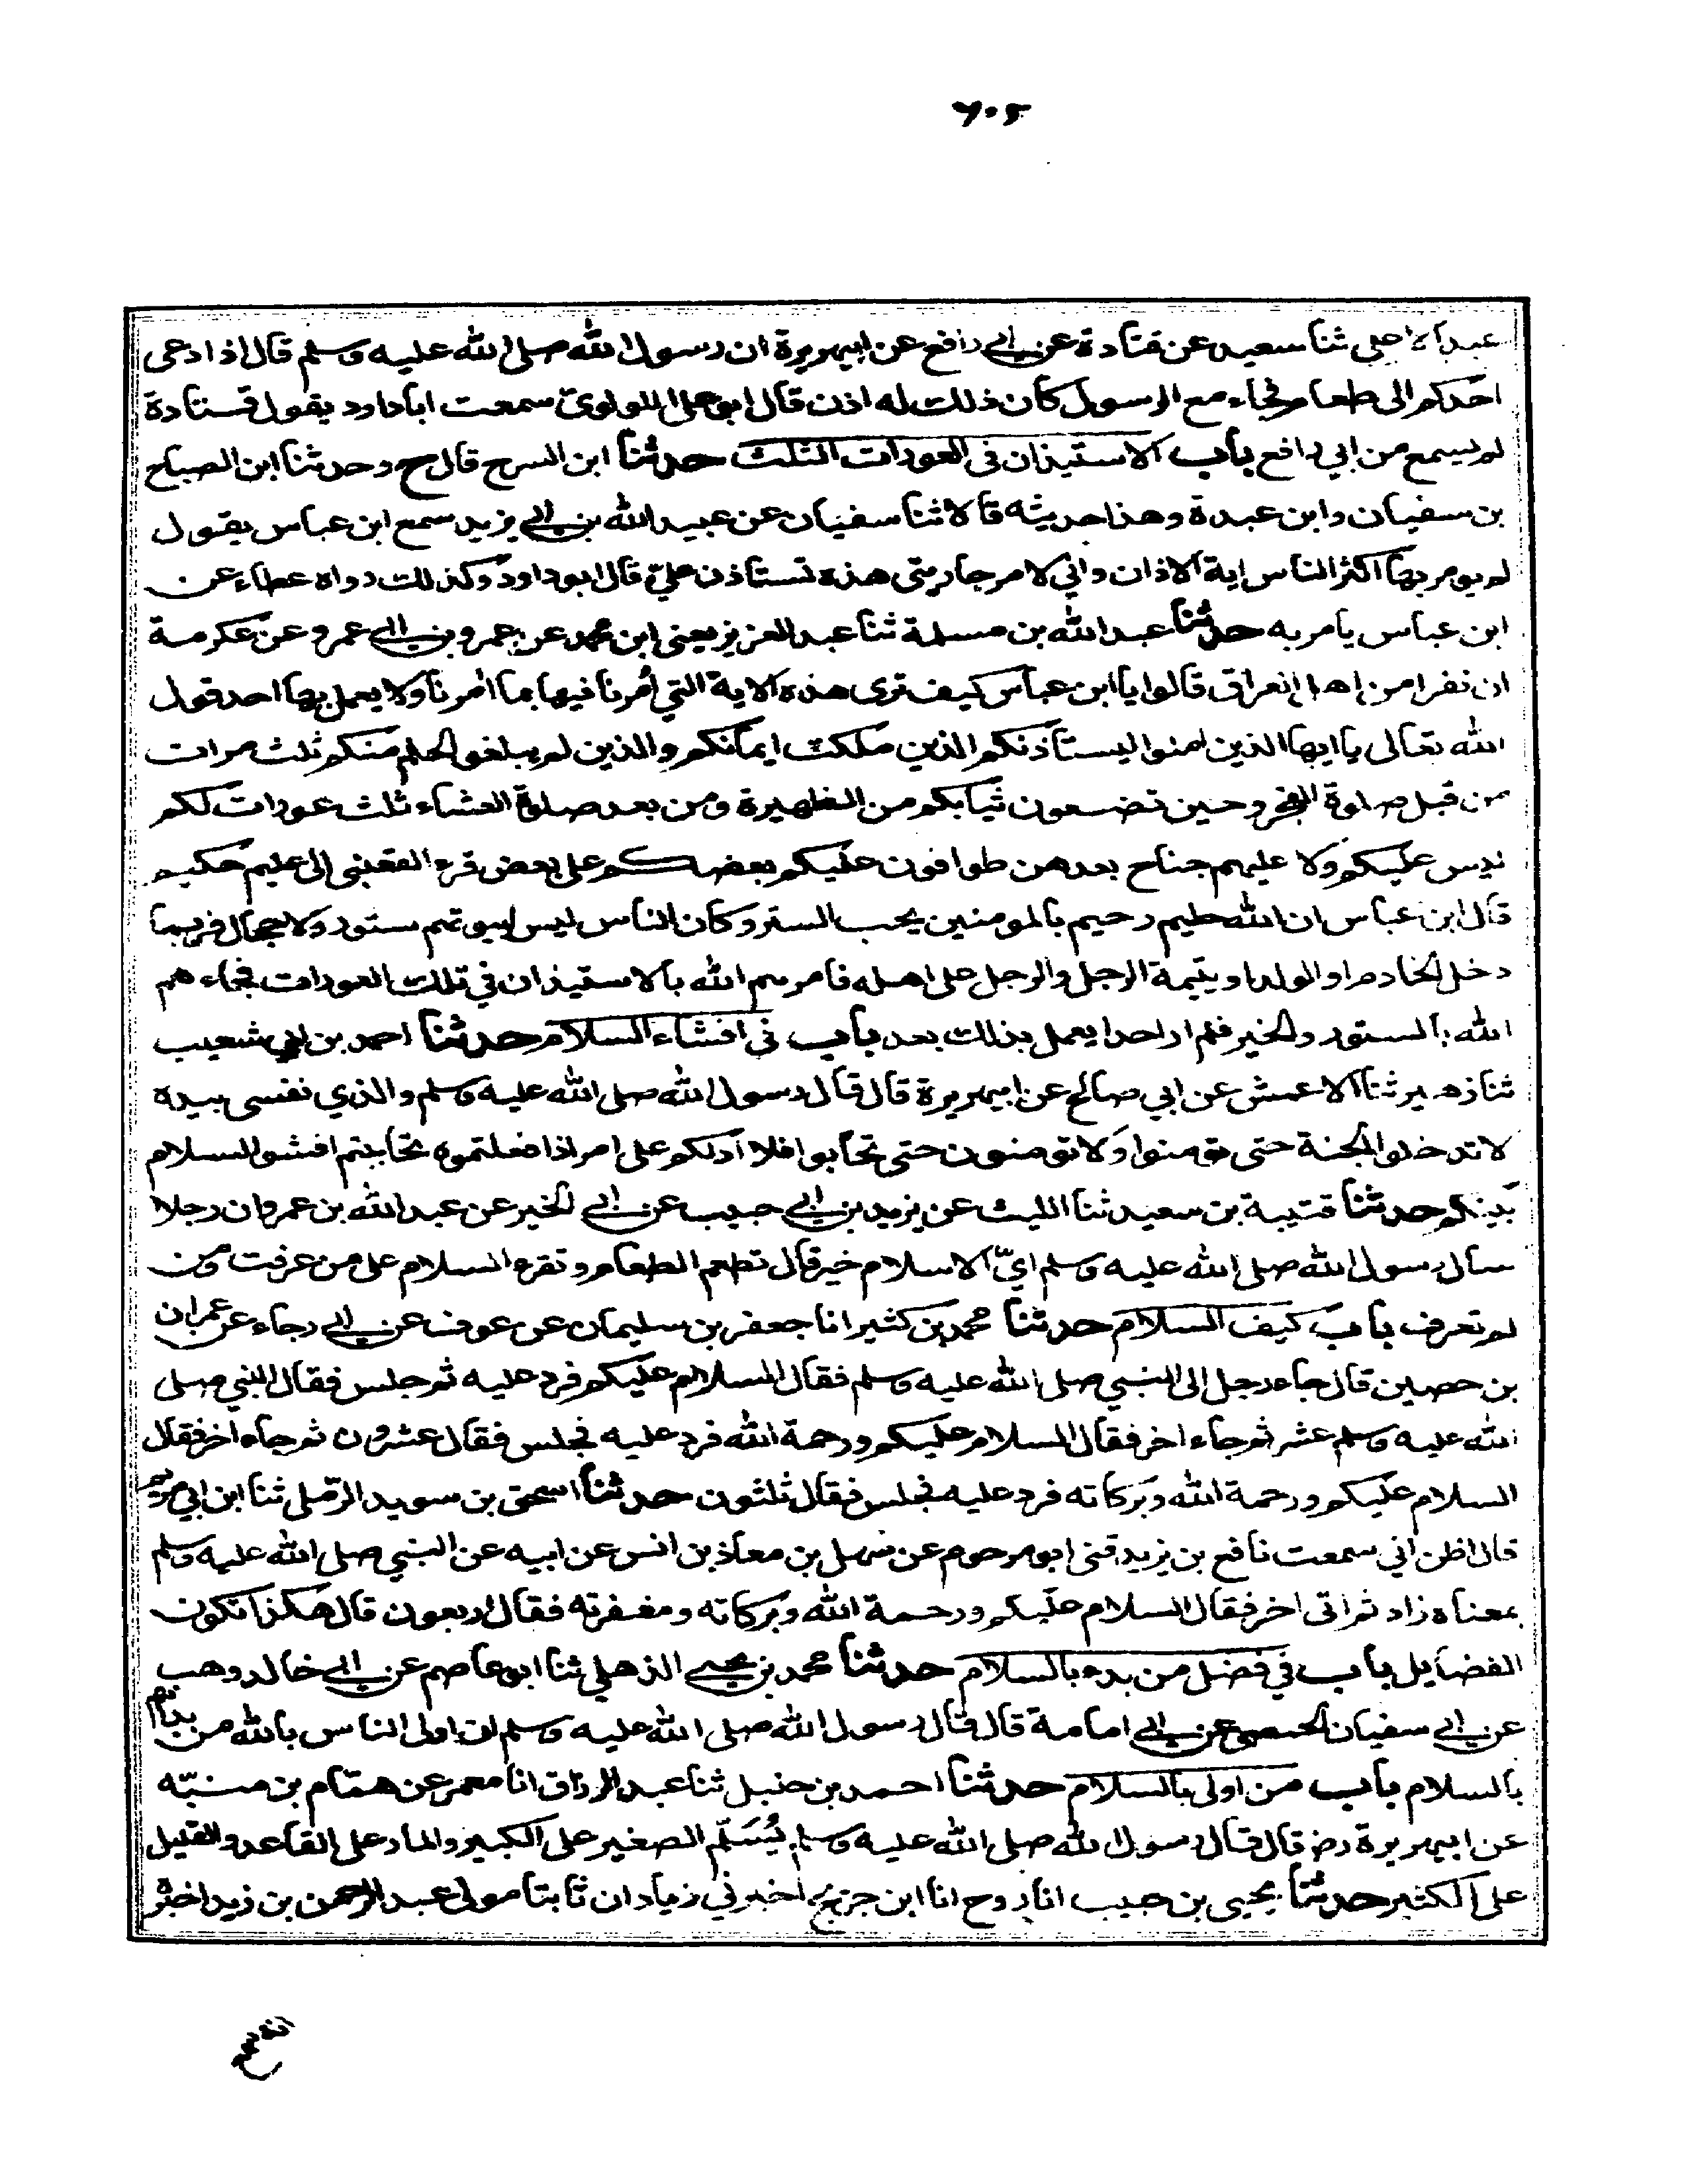 ٦٠٢
عبد الاعلى ثنا سعيد عن قتادة عن ابي رافع عن ابيهريرة ان رسول الله صلى الله عليه وسلم قال اذا دعى
احدكم الى طعام فجاء مع الرسول كان ذلك له اذن قال ابو على اللولوى سمعت ابا داود يقول قتادة
لم يسمع من ابي رافع باب الاستيذان فى العورات الثلث حدثنا ابن السرح قال ح وحدثنا ابن الصباح
بن سفيان وابن عبدة وهذا حديثه قالا ثنا سفيان عن عبيد الله بن ابي يزيد سمع ابن عباس يقول
لم يومر بها اكثر الناس اية الاذن واني لامر جاريتى هذه تستاذن على قال ابو داود وكذلك رواه عطاء عن
ابن عباس يامر به حدثنا عبد الله بن مسلمة ثنا عبد العزيز يعنى ابن محمد عن عمرو بن ابي عمرو عن عكرمة
ان نفرا من اهل العراق قالوا يا ابن عباس كيف ترى هذه الاية التي أمرنا فيها بما امرنا ولا يعمل بها احد قول
الله تعالى يا ايها الذين امنوا ليستأذنكم الذين ملكت ايمانكم والذين لم يبلغوا الحلم منكم ثلث مرات
من قبل صلوة الفجر وحين تضعون ثيابكم من الظهيرة ومن بعد صلوة العشاء ثلث عورات لكم
ليس عليكم ولا عليهم جناح بعدهن طوافون عليكم بعضكم على بعض قرء القعنبى الى عليم حكيم
قال ابن عباس ان الله حليم رحيم بالمومنين يحب الستر وكان الناس ليس لبيوتهم ستور ولا حجال فربما
دخل الخادم او الولد او يتيمة الرجل والرجل على اهله فامرهم الله بالاستيذان في تلك العورات فجاءهم
الله بالستور والخير فلم ار احدا يعمل بذلك بعد باب فى افشاء السلام حدثنا احمد بن ابي شعيب
ثنا زهير ثنا الاعمش عن ابي صالح عن ابيهريرة قال قال رسول الله صلى الله عليه وسلم والذي نفسى بيده
لا تدخلوا الجنة حتى تومنوا ولا تومنون حتى تحابوا افلا ادلكم على امر اذا فعلتموه تحاببتم افشوا السلام
بينكم حدثنا قتيبة بن سعيد ثنا الليث عن يزيد بن ابي حبيب عن ابي الخير عن عبد الله بن عمرو ان رجلا
سال رسول الله صلى الله عليه وسلم ايّ الاسلام خير قال تطعم الطعام وتقرء السلام على من عرفت ومن
لم تعرف باب كيف السلام حدثنا محمد بن كثير انا جعفر بن سليمان عن عوف عن ابي رجاء عن عمران
بن حصين قال جاء رجل الى النبي صلى الله عليه وسلم فقال السلام عليكم فرد عليه ثم جلس فقال النبي صلى
الله عليه وسلم عشر ثم جاء اخر فقال السلام عليكم ورحمة الله فرد عليه فجلس فقال عشرون ثم جاء اخر فقال
السلام عليكم ورحمة الله وبركاته فرد عليه فجلس فقال ثلثون حدثنا اسحق بن سويد الرملى ثنا ابن ابي مريم
قال اظن اني سمعت نافع بن يزيد قنى ابو مرحوم عن سهل بن معاذ بن انس عن ابيه عن النبي صلى الله عليه وسلم
بمعناه زاد ثم اتى اخر فقال السلام عليكم ورحمة الله وبركاته ومغفرته فقال اربعون قال هكذا تكون
الفضايل باب في فضل من بدء بالسلام حدثنا محمد بن يحيى الذهلي ثنا ابو عاصم عن ابي خالد وهب
عن ابي سفيان الحمصى عن ابي امامة قال قال رسول الله صلى الله عليه وسلم ان اولى الناس بالله من بداهم
بالسلام باب من اولى بالسلام حدثنا احمد بن حنبل ثنا عبد الرزاق انا معمر عن همّام بن منبّه
عن ابيهريرة رض قال قال رسول الله صلى الله عليه وسلم يُسَلّم الصغير على الكبير والمار على القاعد والقليل
على الكثير حدثنا يحيى بن حبيب انا روح انا ابن جريج اخبرني زياد ان ثابتا مولى عبد الرحمن بن زيد اخبره